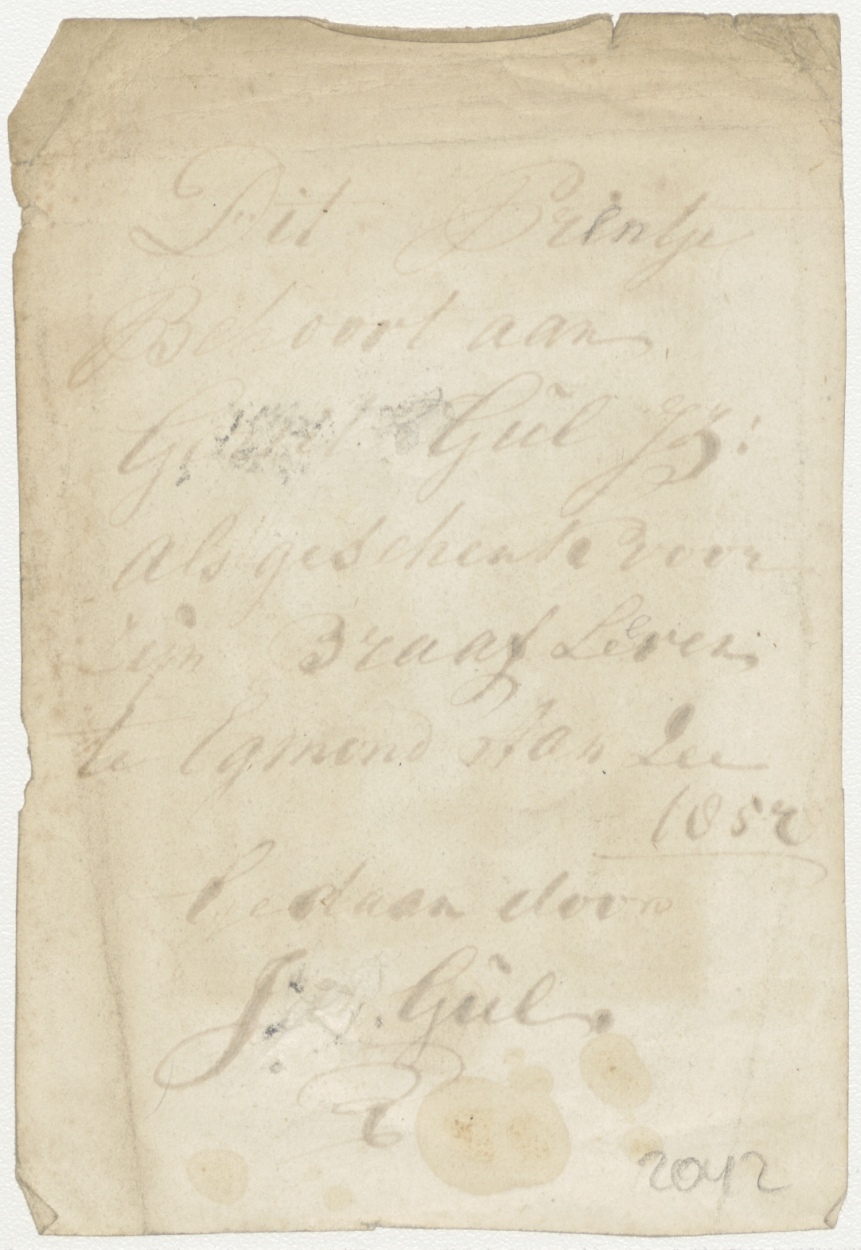 Dit Prentje
Behoort aan
Gül Jz:
als geschenk voor
zijn Braaf Leven
te Egmond Aan Zee
1852
Gedaan door
Gül.
2042